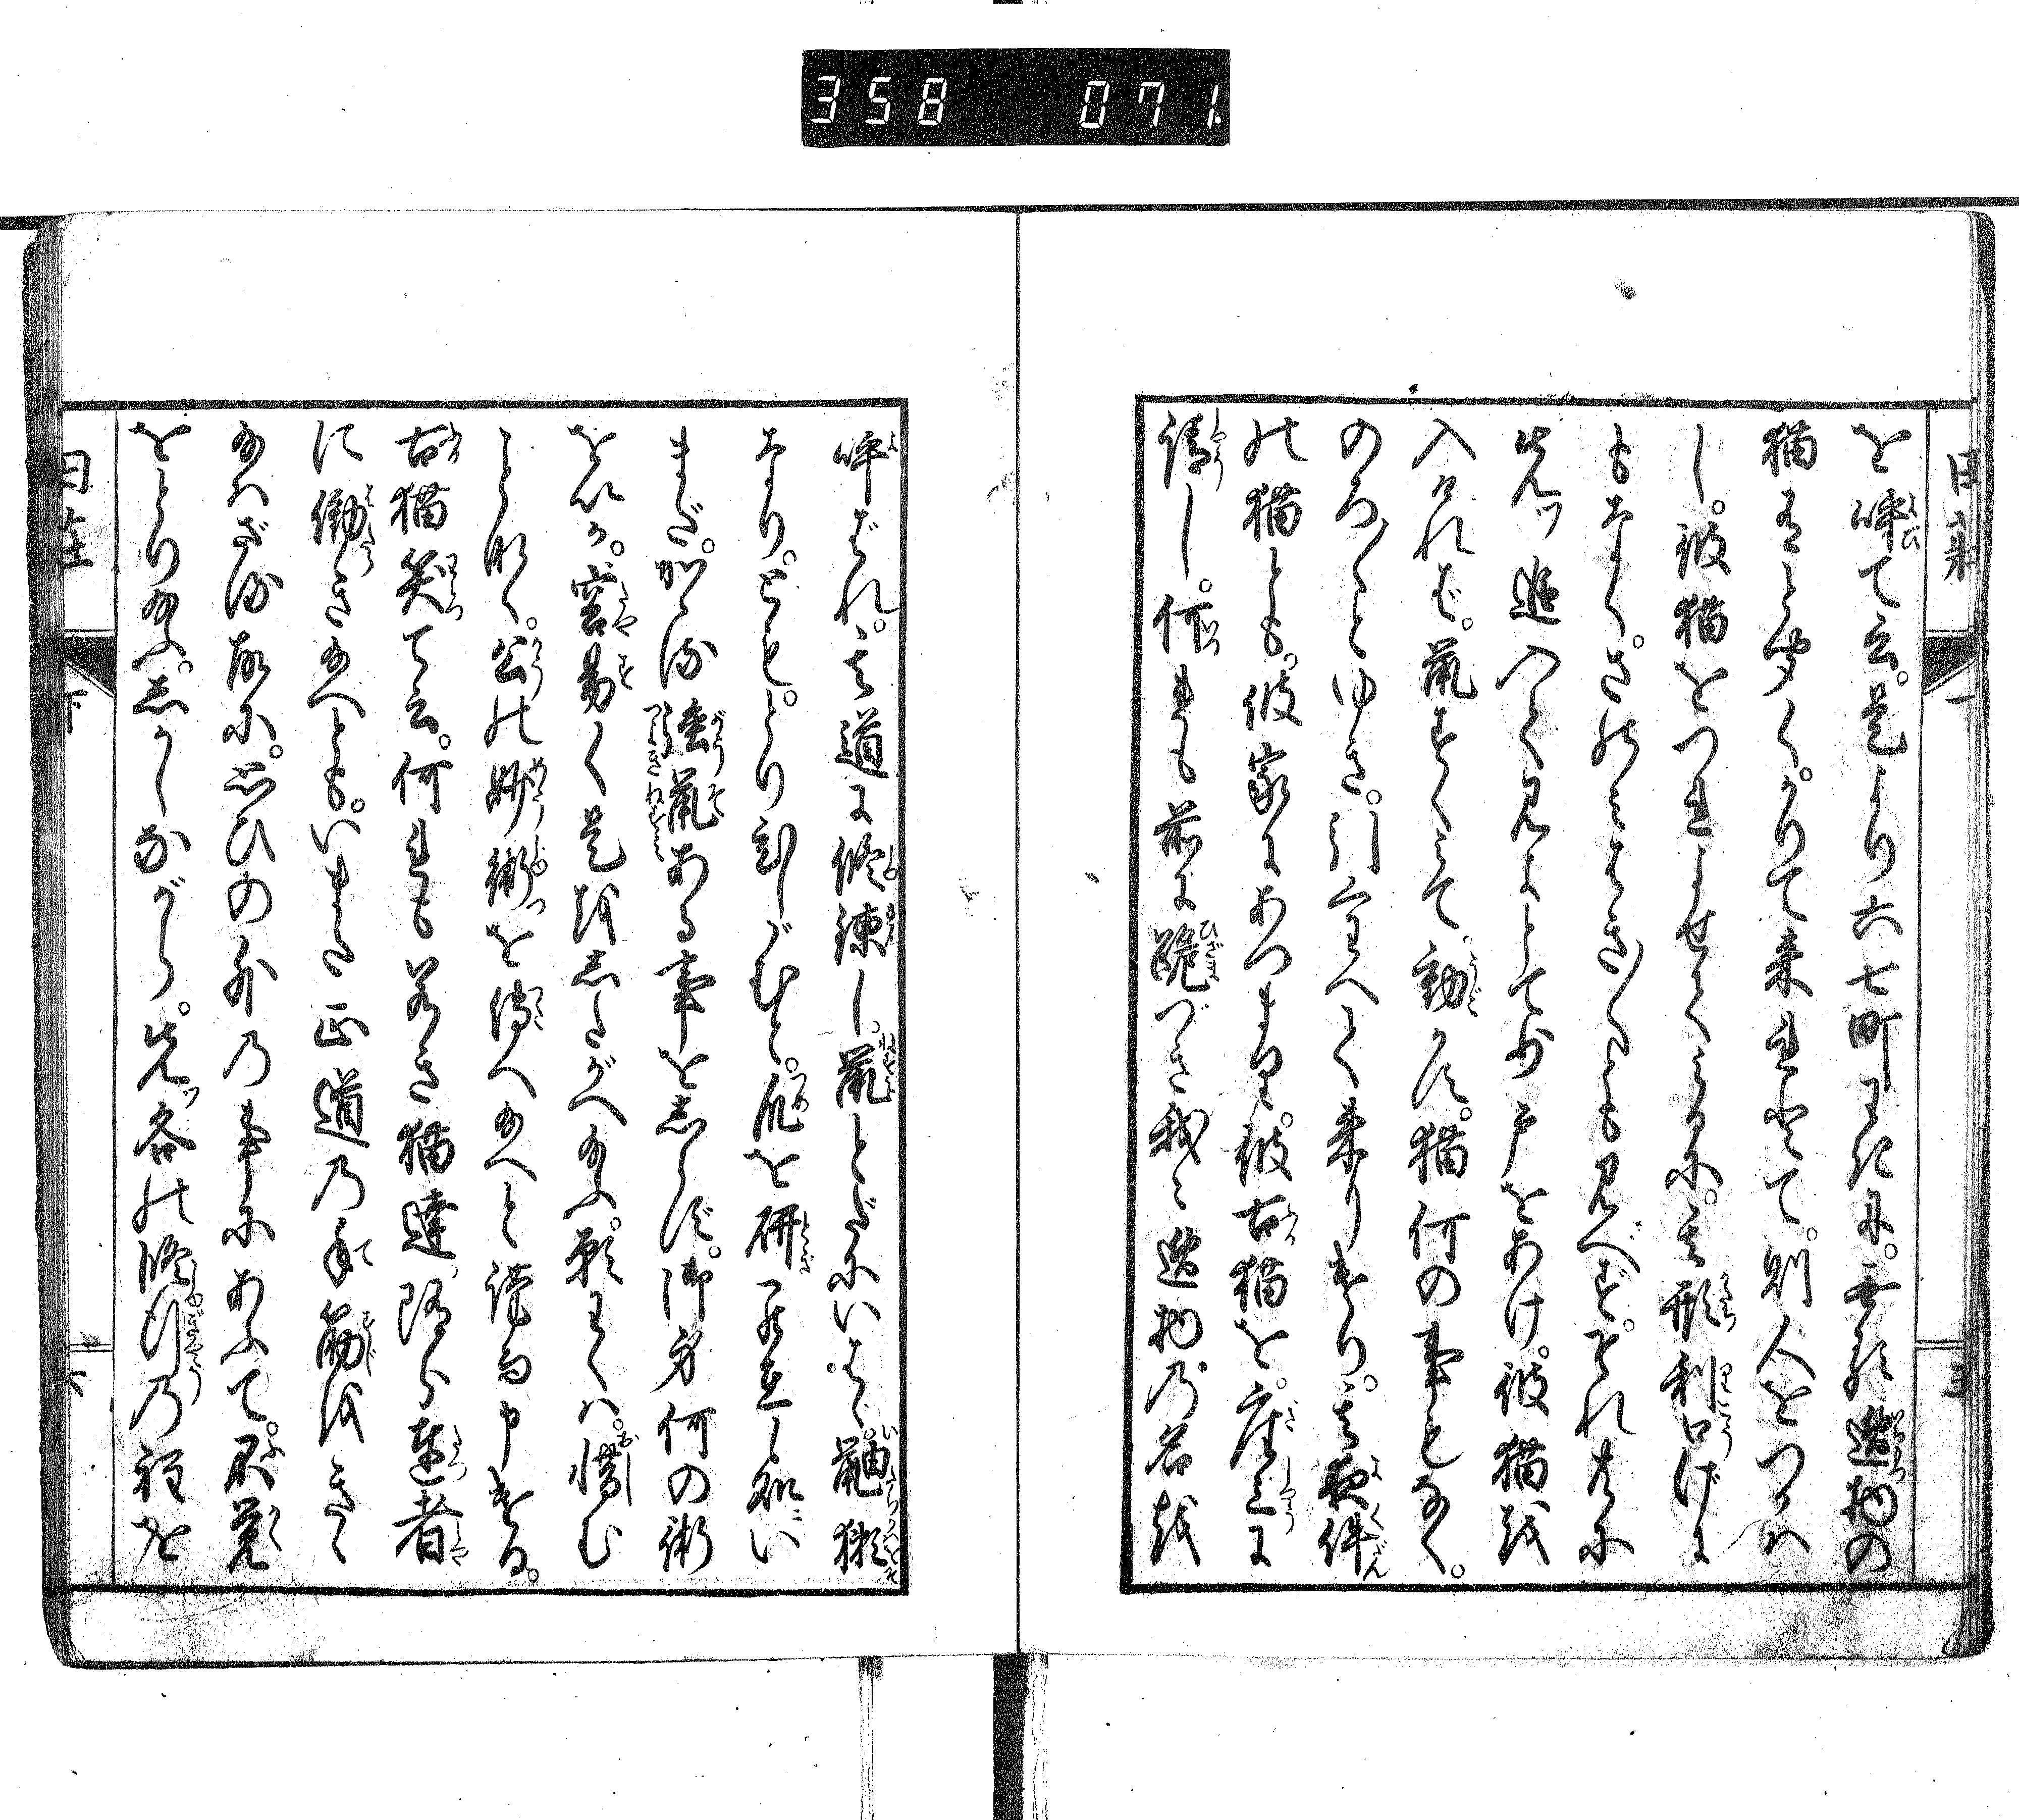 358 071.
を呼て云。是より六七町わきに。無類逸物の
猫有と聞く。かりて来れとて。則人をつかは
し。彼猫をつれよせてみるに。其形利口げに
もなく。さのみはき〳〵とも見へず。それ共に
先ッ追入て見よとて少戸をあけ。彼猫を
入ければ。鼠すくみて動かず。猫何の事もなく。
のろ〳〵とゆき。引くわへて来りけり。其夜件
の猫とも。彼家にあつまり。彼古猫を。座上に
請し。何れも前に跪づき我々逸物の名を
呼ばれ。其道に修練し。鼠とだにいはゞ。鼬獺
なりとも。とりひしがむと。爪を研罷在し処に。い
まだ。かゝる強鼠ある事をしらず。御身何の術
を以か。容易く是をしたがへ給ふ。願わくは。惜む
こと那く。公の妙術を伝へ給へと謹而申ける。
古猫笑て云。何れも若き猫達。随分達者
に働き給へとも。いまた正道の手筋をきゝ
給はざる故に。思ひの外の事にあふて。不覚
をとり給ふ。志かしながら。先ッ各の修行の程を